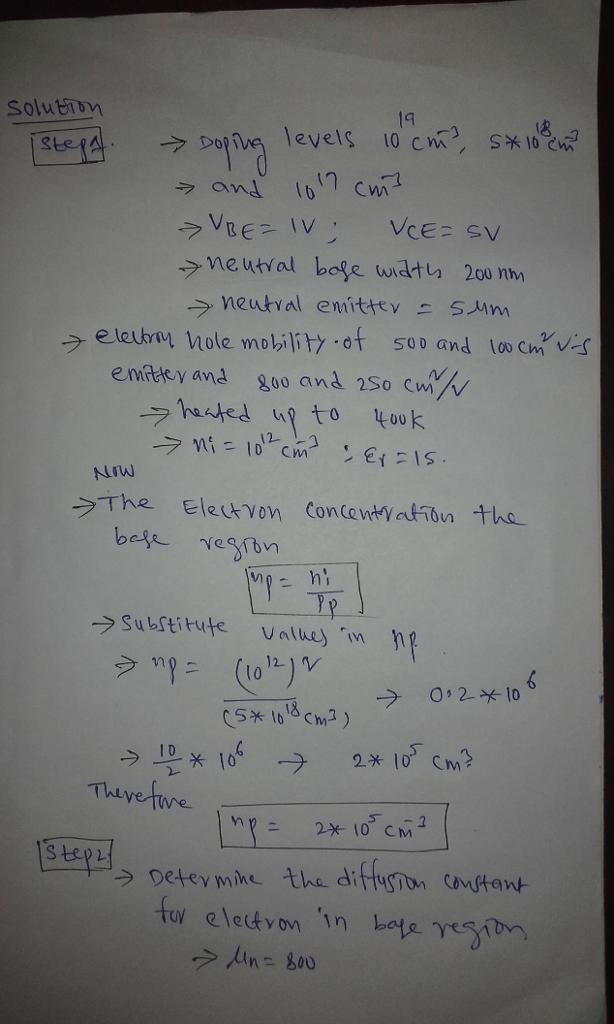 Solution
Step1. → Doping levels 10^19 cm^-3, 5*10^18 cm^-3
→ and 10^17 cm^-3
→ VBE = 1V ; VCE = 5V
→ neutral base width 200 nm
→ neutral emitter = 5 μm
→ electron hole mobility of 500 and 100 cm^2 v-s
emitter and 800 and 250 cm^2/v
→ heated up to 400k
→ ni = 10^12 cm^-3 ; εr = 15.
Now
→ The Electron concentration the
base region
np = ni/Pp
→ Substitute values in np
→ np = (10^12)^2 / (5*10^18 cm^-3) → 0.2 * 10^6
→ 10/2 * 10^6 → 2* 10^5 cm^-3
Therefore
np = 2* 10^5 cm^-3
Step2 → Determine the diffusion constant
for electron in base region
→ μn = 800